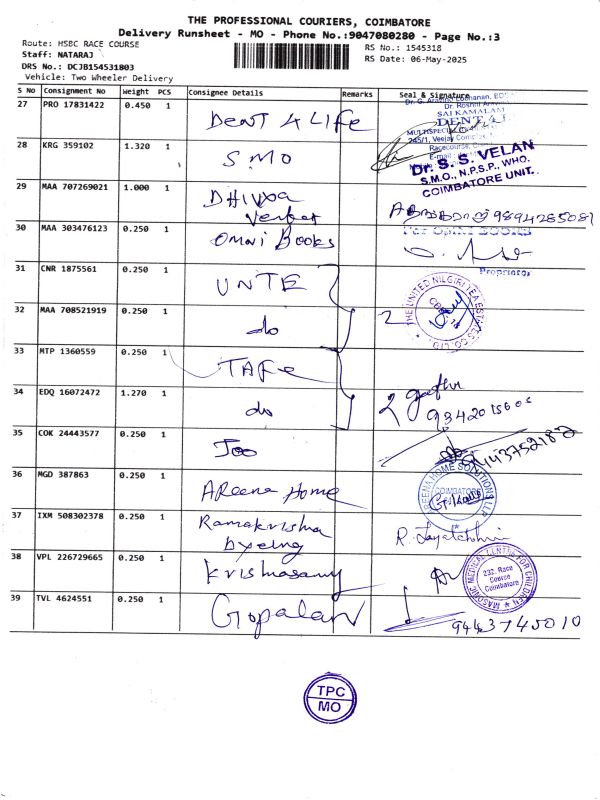 THE PROFESSIONAL COURIERS, COIMBATORE
Delivery Runsheet - MO - Phone No.:9047080280 - Page No.:3
Route: HSBC RACE COURSE
RS No.: 1545318
Staff: NATARAJ
RS Date: 06-May-2025
DRS No.: DCJB154531803
Vehicle: Two Wheeler Delivery
S No Consignment No Weight PCS Consignee Details Remarks Seal & Signature
27 PRO 17831422 0.450 1 DENT 4 LIFE
SAI KAMALAM
DENT 4 L
28 KRG 359102 1.320 1 SMO
Dr. S. S. VELAN
S.M.O., N.P.S.P. WHO.
COIMBATORE UNIT.
29 MAA 707269021 1.000 1 DHIVYA
Venkat
9894285081
30 MAA 303476123 0.250 1 Omni Books
Proprietor
31 CNR 1875561 0.250 1 UNTE
THE UNITED NILGIRI TEA ESTATES CO. LTD.
32 MAA 708521919 0.250 1 do 2
33 MTP 1360559 0.250 1 TAFE
34 EDQ 16072472 1.270 1 do 2
35 COK 24443577 0.250 1 Joo
9443752182
36 MGD 387863 0.250 1 AReena Home
AREENA HOME SOLUTIONS LLP
COIMBATORE
37 IXM 508302378 0.250 1 Ramakrishna
Dyeing
38 VPL 226729665 0.250 1 Krishnasamy
MASONIC MEDICAL CENTRE FOR CHILDREN
232, Race
Course
Coimbatore
39 TVL 4624551 0.250 1 Gopalan
9443745010
TPC
MO